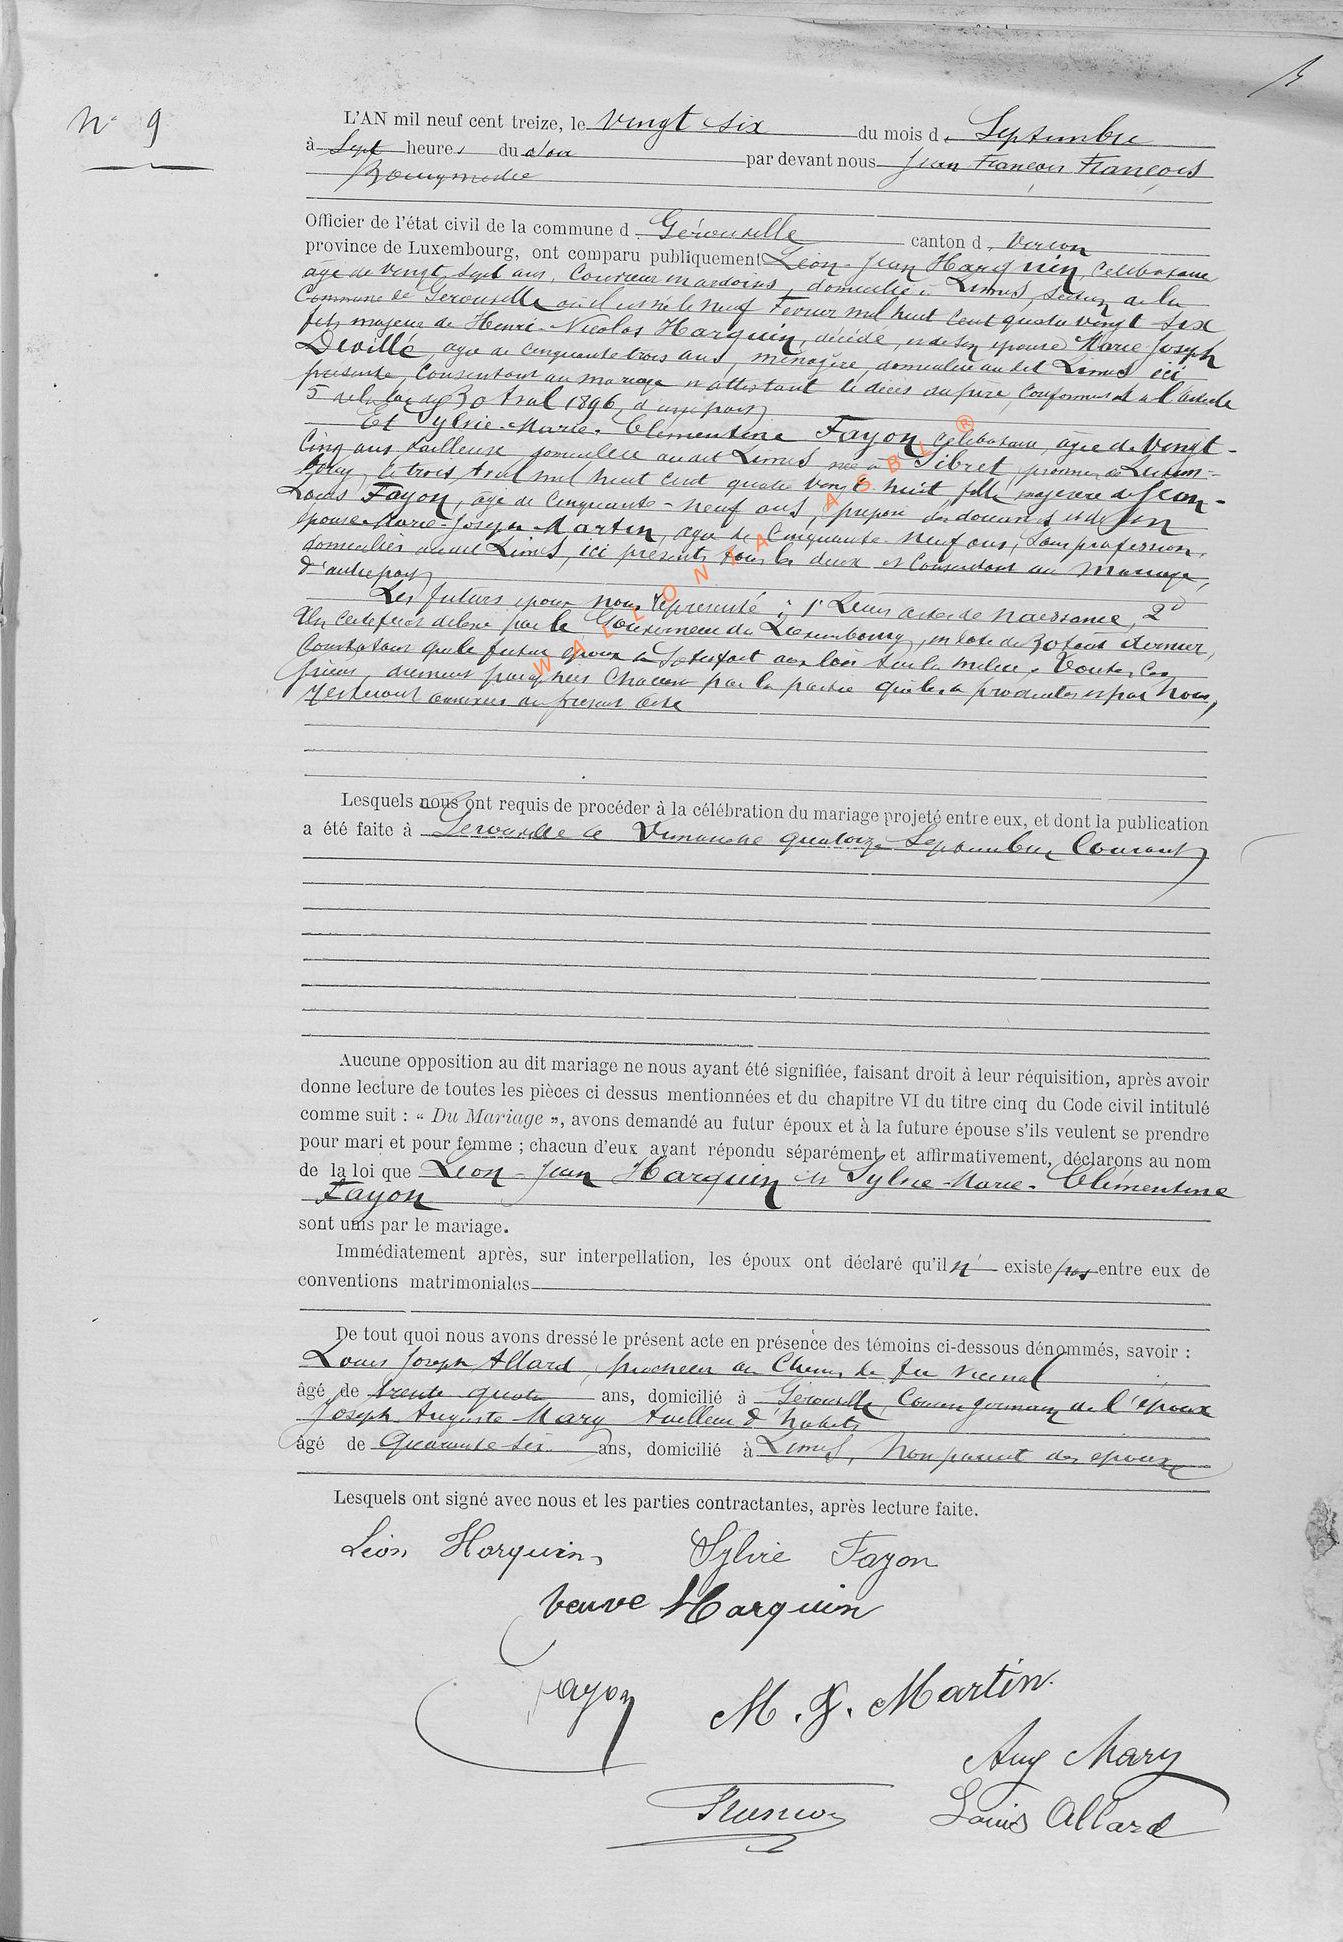 N° 9
L'AN mil neuf cent treize, le vingt six du mois de Septembre
à Sept heures du soir par devant nous Jean François François
Bourgmestre
Officier de l'état civil de la commune d Gérouville canton d Virton
province de Luxembourg, ont comparu publiquement Léon-Jean Harquin, célibataire
âgé de vingt sept ans, Couvreur en ardoises, domicilié à Limes, section de la
Commune de Gérouville où il est né le neuf Février mil huit cent quatre vingt six
fils majeur de Henri-Nicolas Harquin, décédé, et de son épouse Marie Joseph
Devillé, âgée de cinquante trois ans, ménagère, domiciliée au dit Limes, ici
présente, consentant au mariage et attestant le décès du père, conformément à l'article
5 de la loi du 30 Avril 1896, d'une part,
Et Sylvie-Marie-Clémentine Fayon, célibataire, âgée de vingt-
cinq ans, tailleuse, domiciliée au dit Limes, née à Sibret, province de Luxem-
bourg, le trois Avril mil huit cent quatre vingt huit, fille majeure de Jean-
Louis Fayon, âgé de cinquante-neuf ans, préposé des douanes et de son
épouse Marie-Joseph Martin, âgée de cinquante-neuf ans, sans profession,
domiciliés au dit Limes, ici présents tous les deux et consentant au mariage,
d'autre part,
Les futurs époux nous représenté : 1° Leurs actes de naissance, 2°
Un certificat délivré par le Gouverneur du Luxembourg, en date du 30 août dernier,
constatant que le futur époux a satisfait aux lois sur la milice. Toutes ces
pièces, dûment paraphées chacune par la partie qui les a produites et par nous,
resteront annexées au présent acte
WALLONIA ASBL ®
Lesquels nous ont requis de procéder à la célébration du mariage projeté entre eux, et dont la publication
a été faite à Gérouville le Dimanche quatorze Septembre Courant
Aucune opposition au dit mariage ne nous ayant été signifiée, faisant droit à leur réquisition, après avoir
donne lecture de toutes les pièces ci dessus mentionnées et du chapitre VI du titre cinq du Code civil intitulé
comme suit : « Du Mariage », avons demandé au futur époux et à la future épouse s'ils veulent se prendre
pour mari et pour femme ; chacun d'eux ayant répondu séparément et affirmativement, déclarons au nom
de la loi que Léon-Jean Harquin et Sylvie-Marie-Clémentine
Fayon
sont unis par le mariage.
Immédiatement après, sur interpellation, les époux ont déclaré qu'il n' existe pas entre eux de
conventions matrimoniales
De tout quoi nous avons dressé le présent acte en présence des témoins ci-dessous dénommés, savoir :
Louis Joseph Allard, au Chemin de fer vicinal
âgé de trente quatre ans, domicilié à Gérouville, Cousin germain de l'époux
Joseph Auguste Mary tailleur d'habits
âgé de Quarante six ans, domicilié à Limes, non parent des époux
Lesquels ont signé avec nous et les parties contractantes, après lecture faite.
Léon Harquin Sylvie Fayon
Veuve Harquin
Fayon M. J. Martin
Aug Mary
François Louis Allard